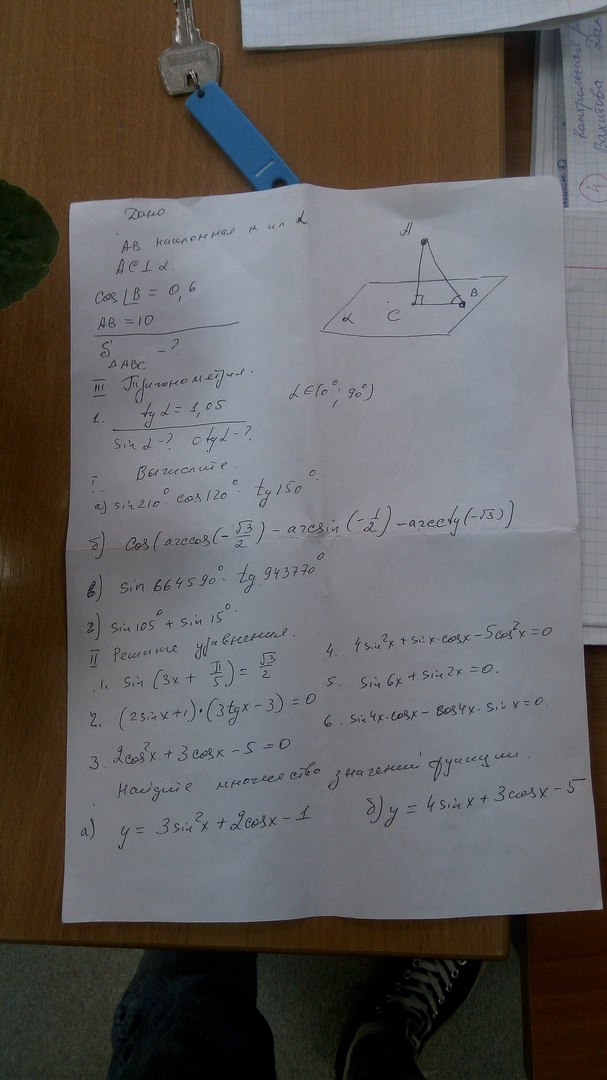 Дано
AB наклонная к пл α
AC⊥α.
cos∠B = 0,6
AB = 10
S△ABC - ?
A
B
C
α
III Тригонометрия.
1. tg α = 1,05
α∈(0°; 90°)
sin α - ? ctg α - ?
I. Вычислите.
а) sin 210° · cos 120° · tg 150°.
б) cos(arccos(-√3/2) - arcsin(-1/2) - arcctg(-√3))
в) sin 664590° · tg 943770°
г) sin 105° + sin 15°.
II Решите уравнения.
1. sin(3x + π/5) = √3/2
2. (2sinx+1)·(3tgx-3) = 0
3. 2cos²x + 3cosx - 5 = 0
4. 4sin²x + sinx·cosx - 5cos²x = 0
5. sin6x + sin2x = 0.
6. sin4x·cosx - cos4x·sinx = 0.
Найдите множество значений функции.
а) y = 3sin²x + 2cosx - 1
б) y = 4sinx + 3cosx - 5
Контрольная
Вахитова
4